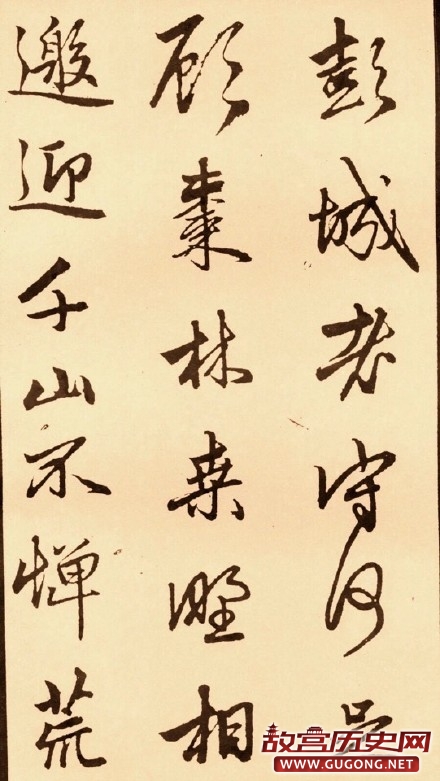 彭城老守何足
顧棗林桑野相
邀迎千山不憚荒
故宫历史网
WWW.GUGONG.NET